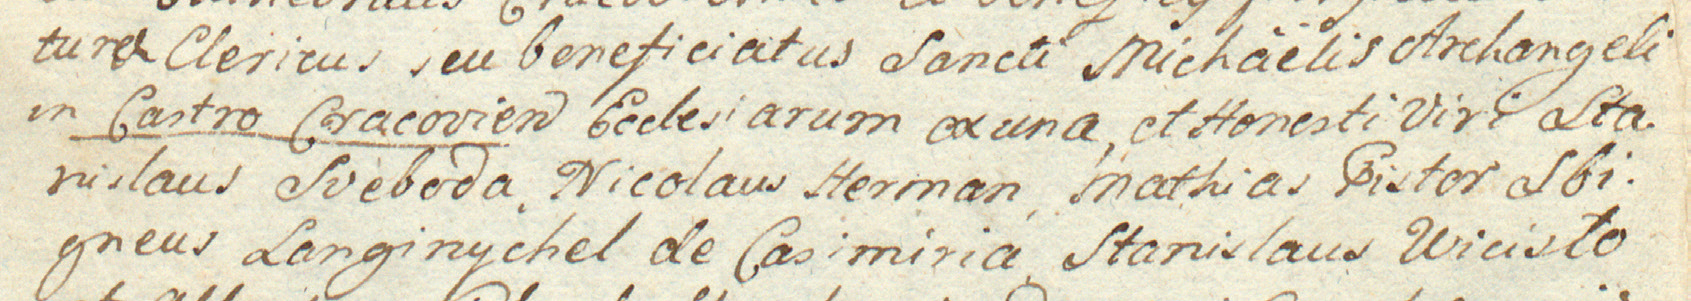 turæ Clericus seu beneficiatus Sancti Michäelis Archangeli
in Castro Cracovien Ecclesiarum ex una, et Honesti Viri Sta.
nislaus Sveboda, Nicolaus Herman, Mathias Pistor Sbi.
gneus Langinychel de Casimiria, Stanislaus Wicisto